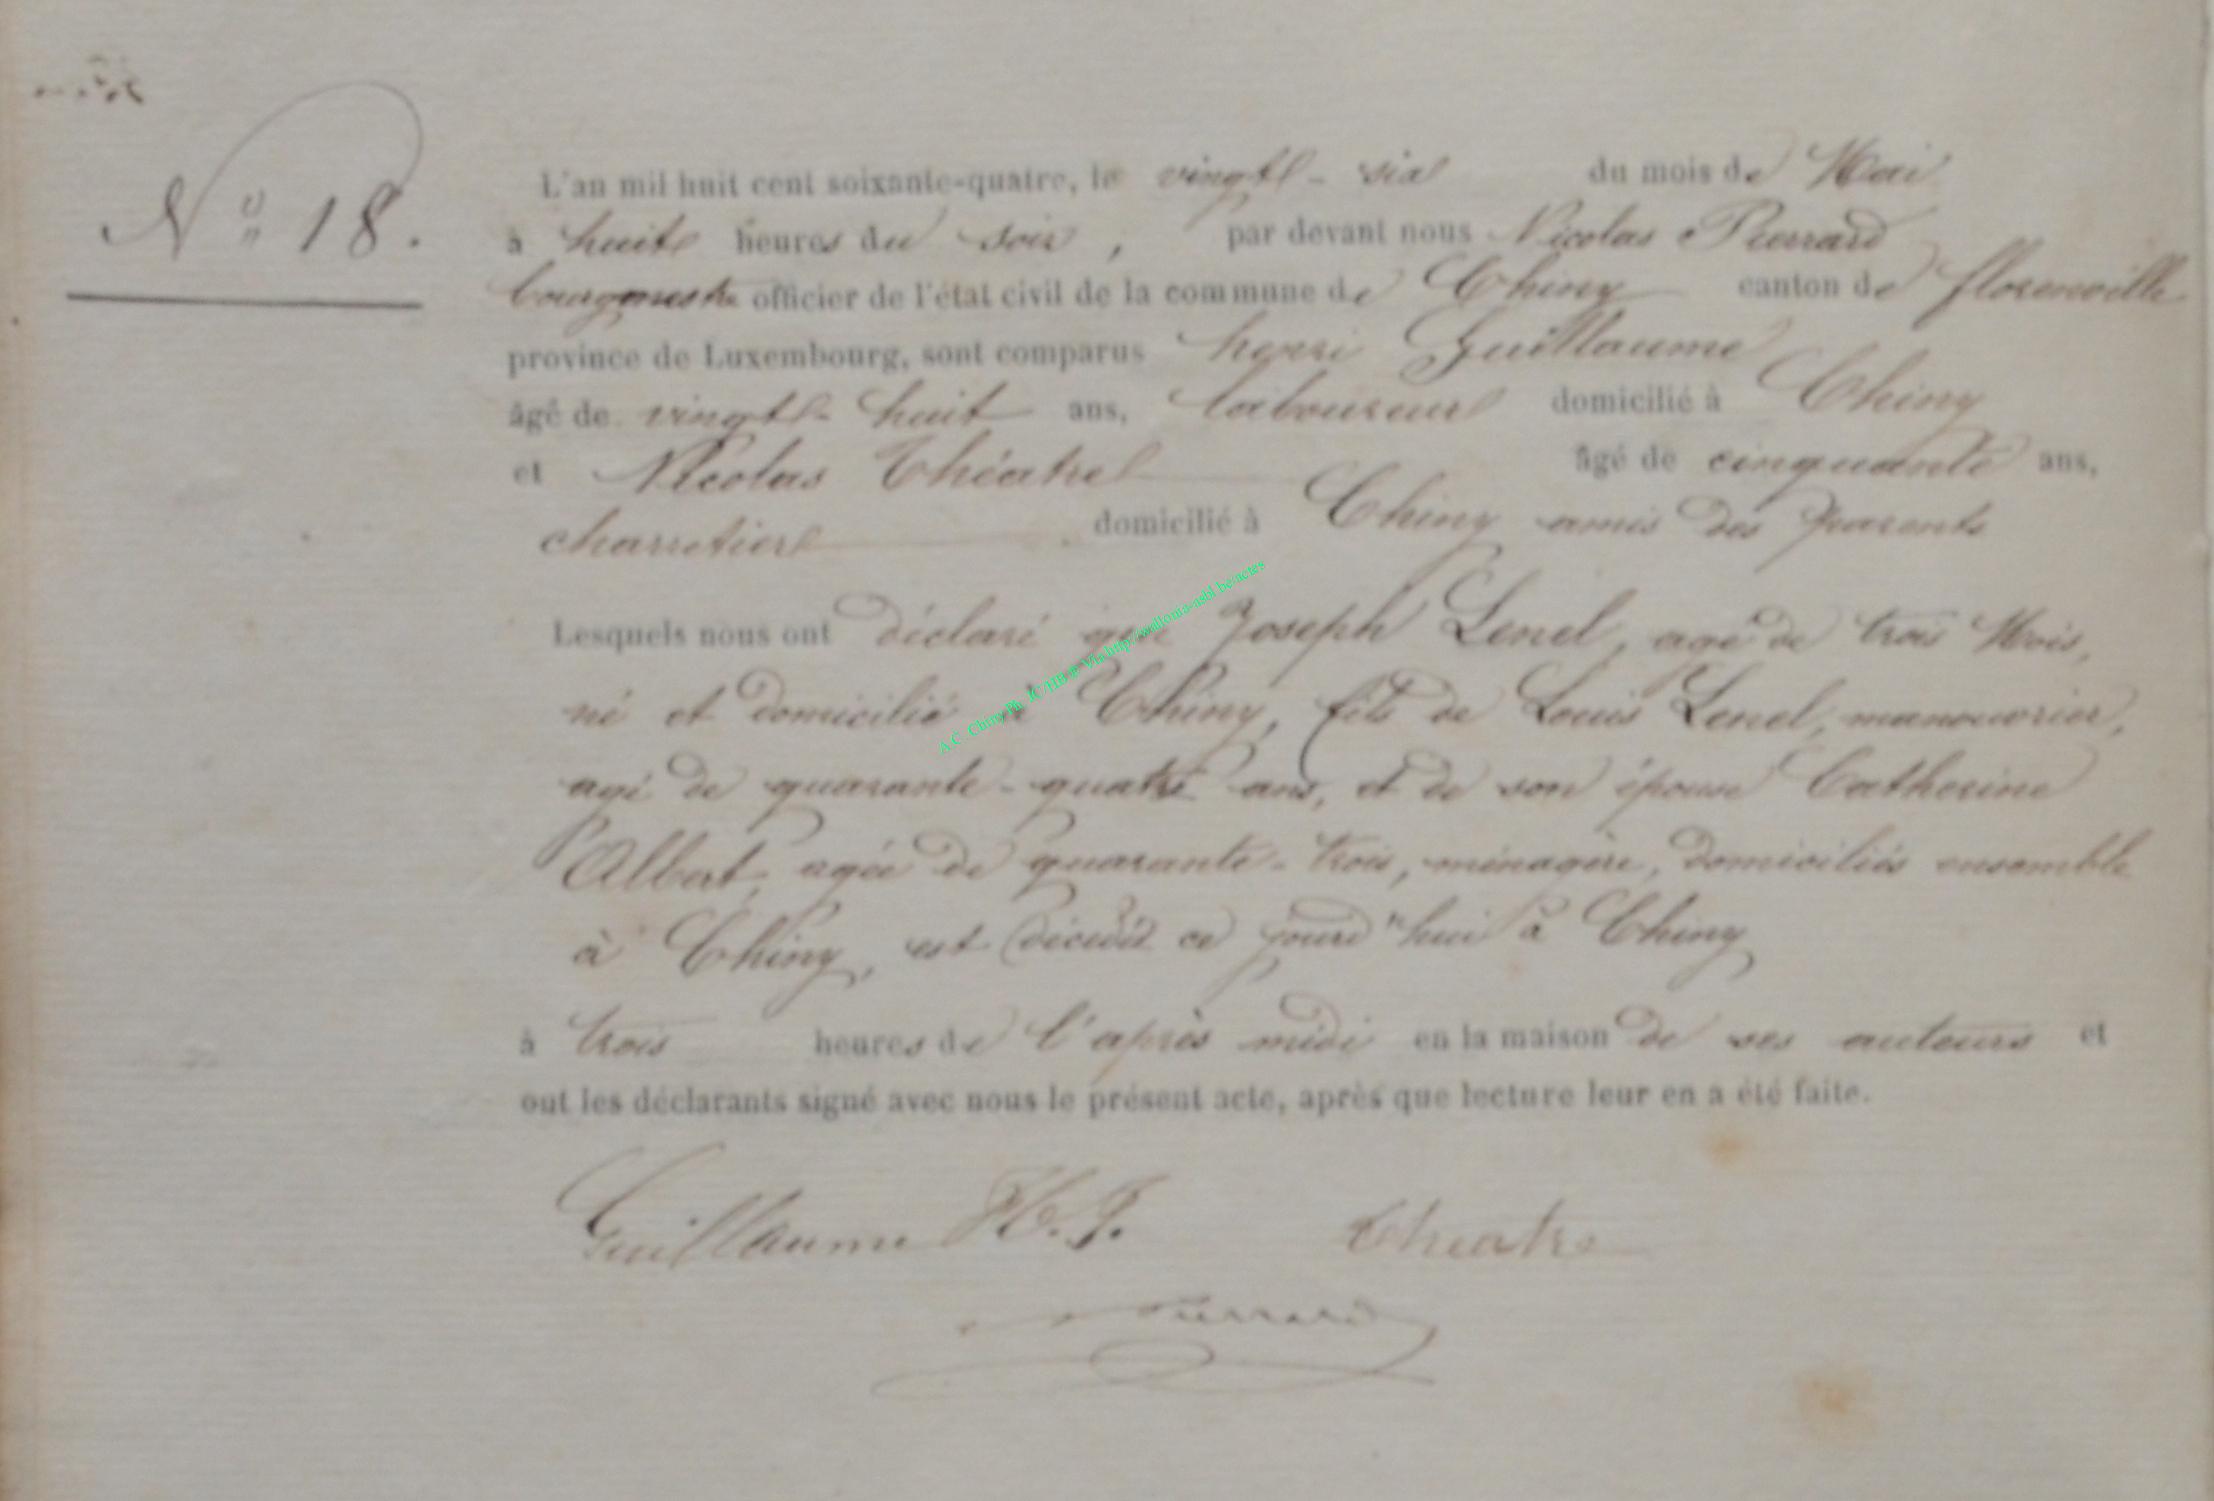 N° 18.
L'an mil huit cent soixante-quatre, le vingt-six du mois de Mai
à huit heures du soir, par devant nous Nicolas Pierrard
bourgmestre officier de l'état civil de la commune de Chiny canton de florenville
province de Luxembourg, sont comparus henri Guillaume
âgé de vingt-huit ans, laboureur domicilié à Chiny
et Nicolas Théatre âgé de cinquante ans,
charretier domicilié à Chiny amis des parents
Lesquels nous ont déclaré que Joseph Lenel, agé de trois Mois,
né et domicilié à Chiny, fils de Louis Lenel, manouvrier,
agé de quarante-quatre ans, et de son épouse Catherine
Albert, agée de quarante-trois, ménagère, domiciliés ensemble
à Chiny, est décédé ce jourd'hui à Chiny
à trois heures de l'après midi en la maison de ses auteurs et
ont les déclarants signé avec nous le présent acte, après que lecture leur en a été faite.
Guillaume H. J. Theatre
Pierrard
A.C. Chiny Ph. JC/HB @ Via http://wallonia-asbl.be/actes